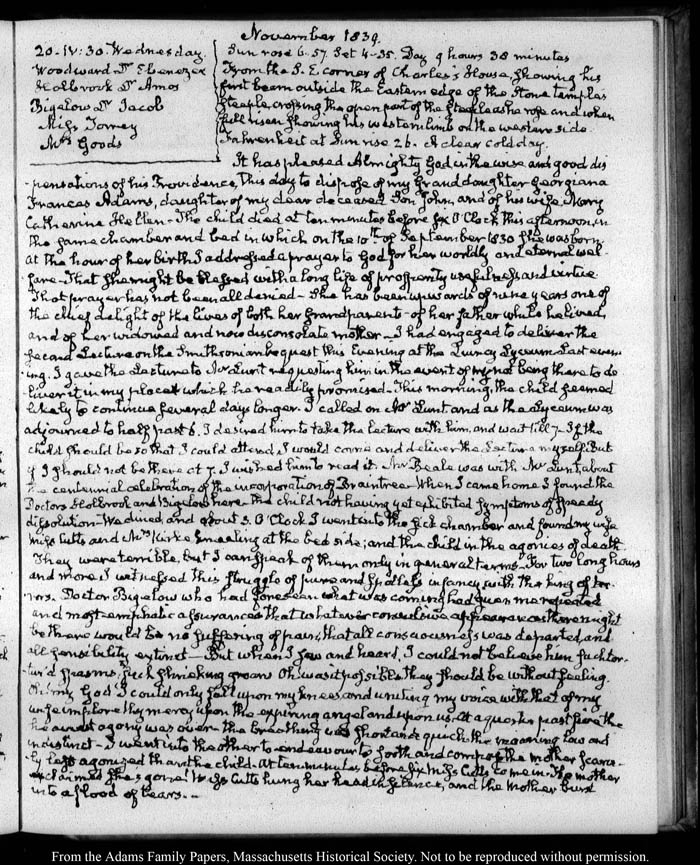 November 1839.
20. IV:30. Wednesday.
Woodward Dr Ebenezer
Holbrook Dr Amos
Bigelow Dr Jacob
Miss Torrey
Mrs Goods
Sun rose 6-57. Set 4-35. Day 9 hours 38 minutes
From the S. E corner of Charles's House, showing his
first beam outside the Eastern edge of the Stone temples
steeple, crossing the open part of the steeple as he rose and when
full risen showing his western limb on the western side
Fahrenheit at Sun rise 26. A clear cold day.
It has pleased Almighty God in the wise and good dis
-pensations of his Providence, This day to dispose of my Grand daughter Georgiana
Frances Adams, daughter of my dear deceased Son John, and of his wife, Mary
Catherine Hellen — The child died at ten minutes before six O'Clock this afternoon, in
the same chamber and bed in which on the 10th of September 1830 she was born.
At the hour of her birth I addressed a prayer to God for her worldly and eternal wel-
fare — That she might be blessed with a long life of prosperity usefulness and virtue
That prayer has not been all denied — She has been upwards of nine years one of
the chief delight of the lives of both her Grandparents — of her father while he lived,
and of her widowed and now disconsolate mother — I had engaged to deliver the
second Lecture on the Smithsonian bequest this Evening at the Quincy Lyceum. Last even-
ing. I gave the Lecture to Mr Lunt requesting him in the event of my not being there to de
liver it in my place which he readily promised — This morning, the child seemed
likely to continue several days longer. I called on Mr Lunt, and as the Lyceum was
adjourned to half past 6. I desired him to take the Lecture with him, and wait till 7 — If the
child should be so that I could attend, I would come and deliver the Lecture myself. But
if I should not be there at 7. I wished him to read it. Mr Beale was with Mr Lunt, about
the centennial celebration of the incorporation of Braintree — When I came home I found the
Doctors Holbrook and Bigelow here — the child not having yet exhibited symptoms of speedy
dissolution — We dined and about 3. O'Clock I went into the sick chamber and found my wife
Miss Cutts and Mrs Kirke kneeling at the bed side; and the child in the agonies of death.
They were terrible, but I can speak of them only in general terms — For two long hours
and more I witnessed this struggle of pure and spotless infancy with the king of ter-
rors. Doctor Bigelow who had foreseen what was coming had given me repeated
and most emphatic assurances that whatever convulsive appearances there might
be there would be no suffering of pain, that all consciousness was departed, and
all sensibility extinct — But when I saw and heard, I could not believe him such tor-
tur'd spasms, such shrieking groans Oh was it possible they should be without feeling.
Oh, my God, I could only fall upon my knees and uniting my voice with that of my
wife implore thy mercy upon the expiring angel and upon us. At a quarter past five the
agony was over — the breathing was short and quick the moaning low and
indistinct — I went into the other to endeavour to sooth and comfort the mother scarce-
ly less agonized than the child. At ten minutes before six Miss Cutts came in. The mother
exclaimed she's gone! Miss Cutts hung her head in silence, and the Mother burst
into a flood of tears. —
From the Adams Family Papers, Massachusetts Historical Society. Not to be reproduced without permission.